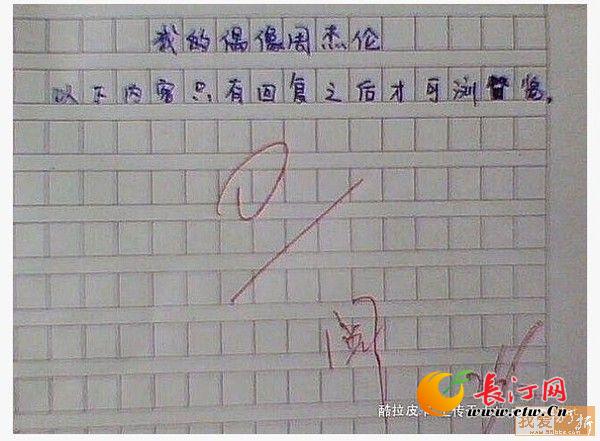 我的偶像周杰伦
以下内容只有回复之后才可浏览。
0
阅
长汀网
www.ctw.cn
我爱巧折